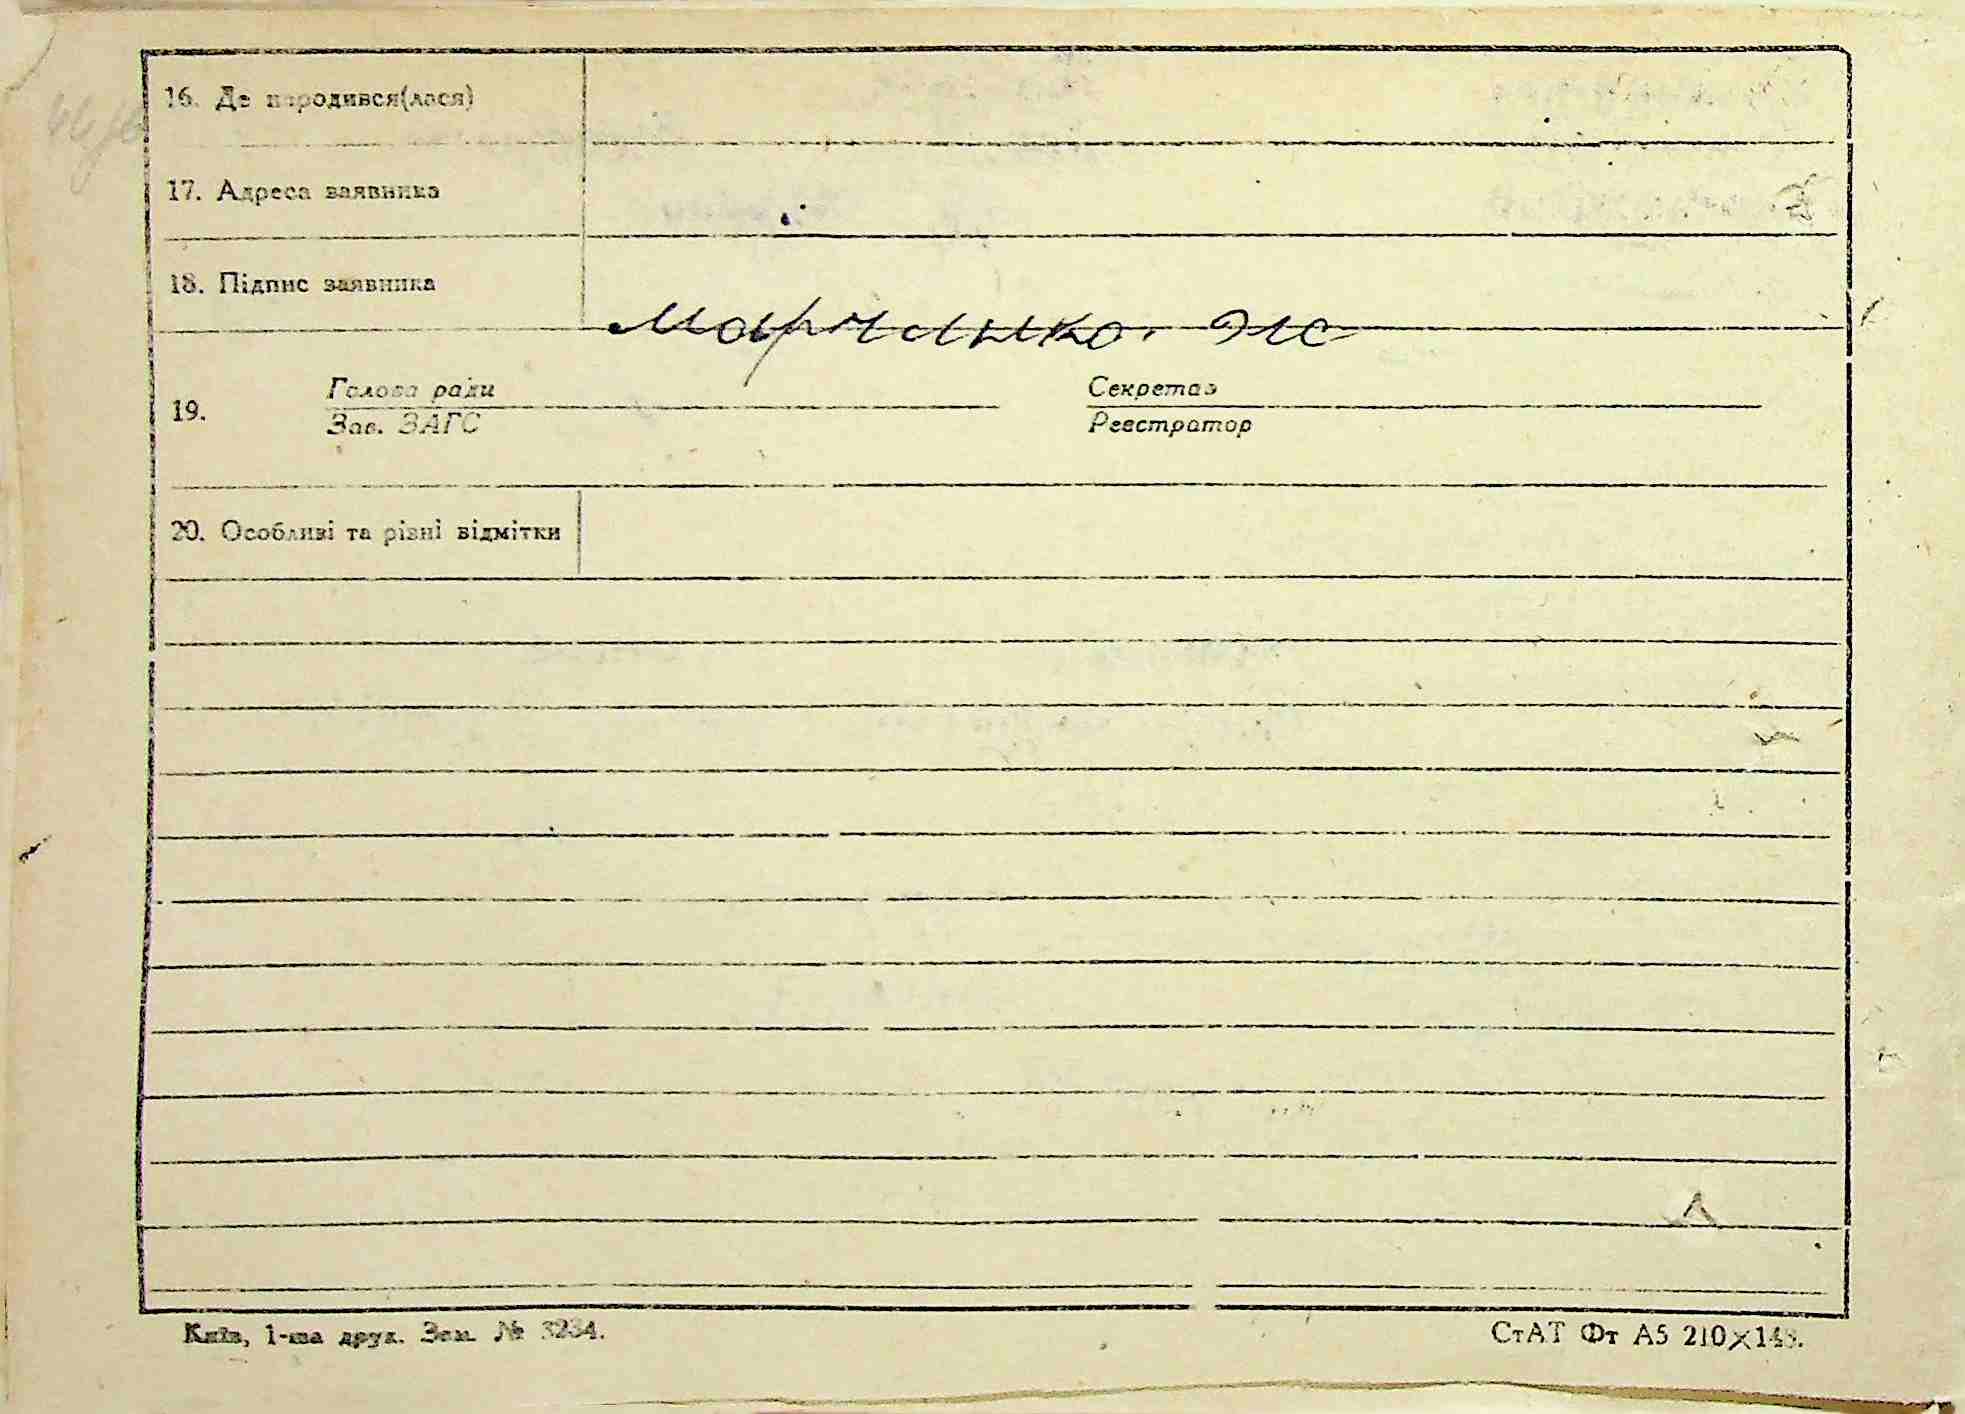 16. Де народився(лася)
17. Адреса заявника
18. Підпис заявника
19.
Голова ради
Зав. ЗАГС
Секретар
Реєстратор
20. Особливі та різні відмітки
Київ, 1-ша друк. Зам. № 3234.
СтАТ Фт А5 210×148.